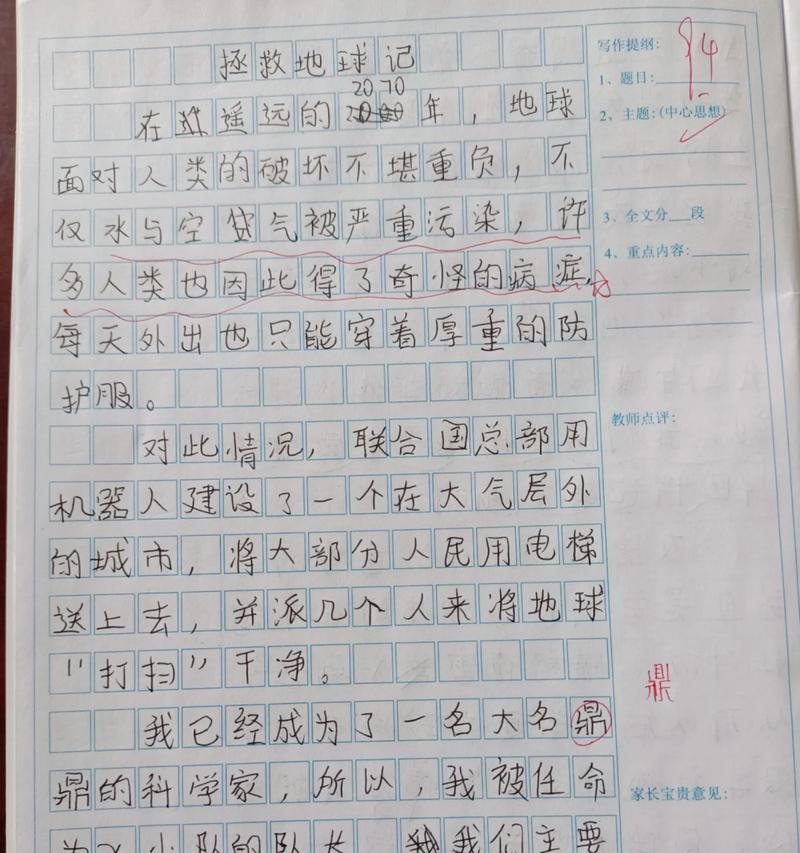 拯救地球记
94
写作提纲:
1、题目:
2070
在遥远的年，地球
2、主题:(中心思想)
面对人类的破坏不堪重负，不
仅水与空气被严重污染，许
3、全文分__段
4、重点内容:
多人类也因此得了奇怪的病症，
每天外出也只能穿着厚重的防
护服。
教师点评:
对此情况，联合国总部用
机器人建设了一个在大气层外
的城市，将大部分人民用电梯
送上去，并派几个人来将地球
“打扫”干净。
鼎
我已经成为了一名大名鼎
鼎的科学家，所以，我被任命
家长宝贵意见:
为小队的队长 我们主要